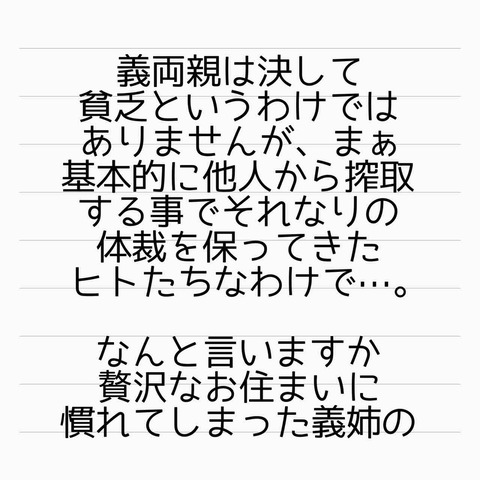 義両親は決して
貧乏というわけでは
ありませんが、まぁ
基本的に他人から搾取
する事でそれなりの
体裁を保ってきた
ヒトたちなわけで…。
なんと言いますか
贅沢なお住まいに
慣れてしまった義姉の